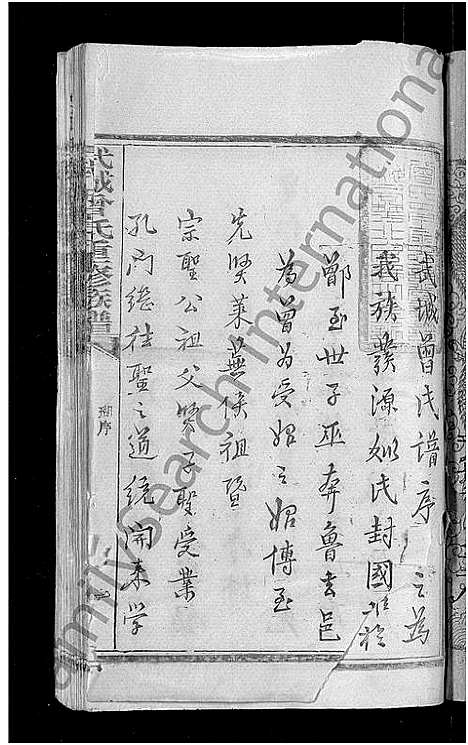 武城曾氏譜序
之為
我族發源姒氏封國于
鄫至世子巫奔魯去邑
為曾為受姓之始傳至
先賢萊蕪侯祖暨
宗聖公祖父賢子聖受業
孔門繼往聖之道統開來學
武城曾氏重修族譜
序
FamilySearch International